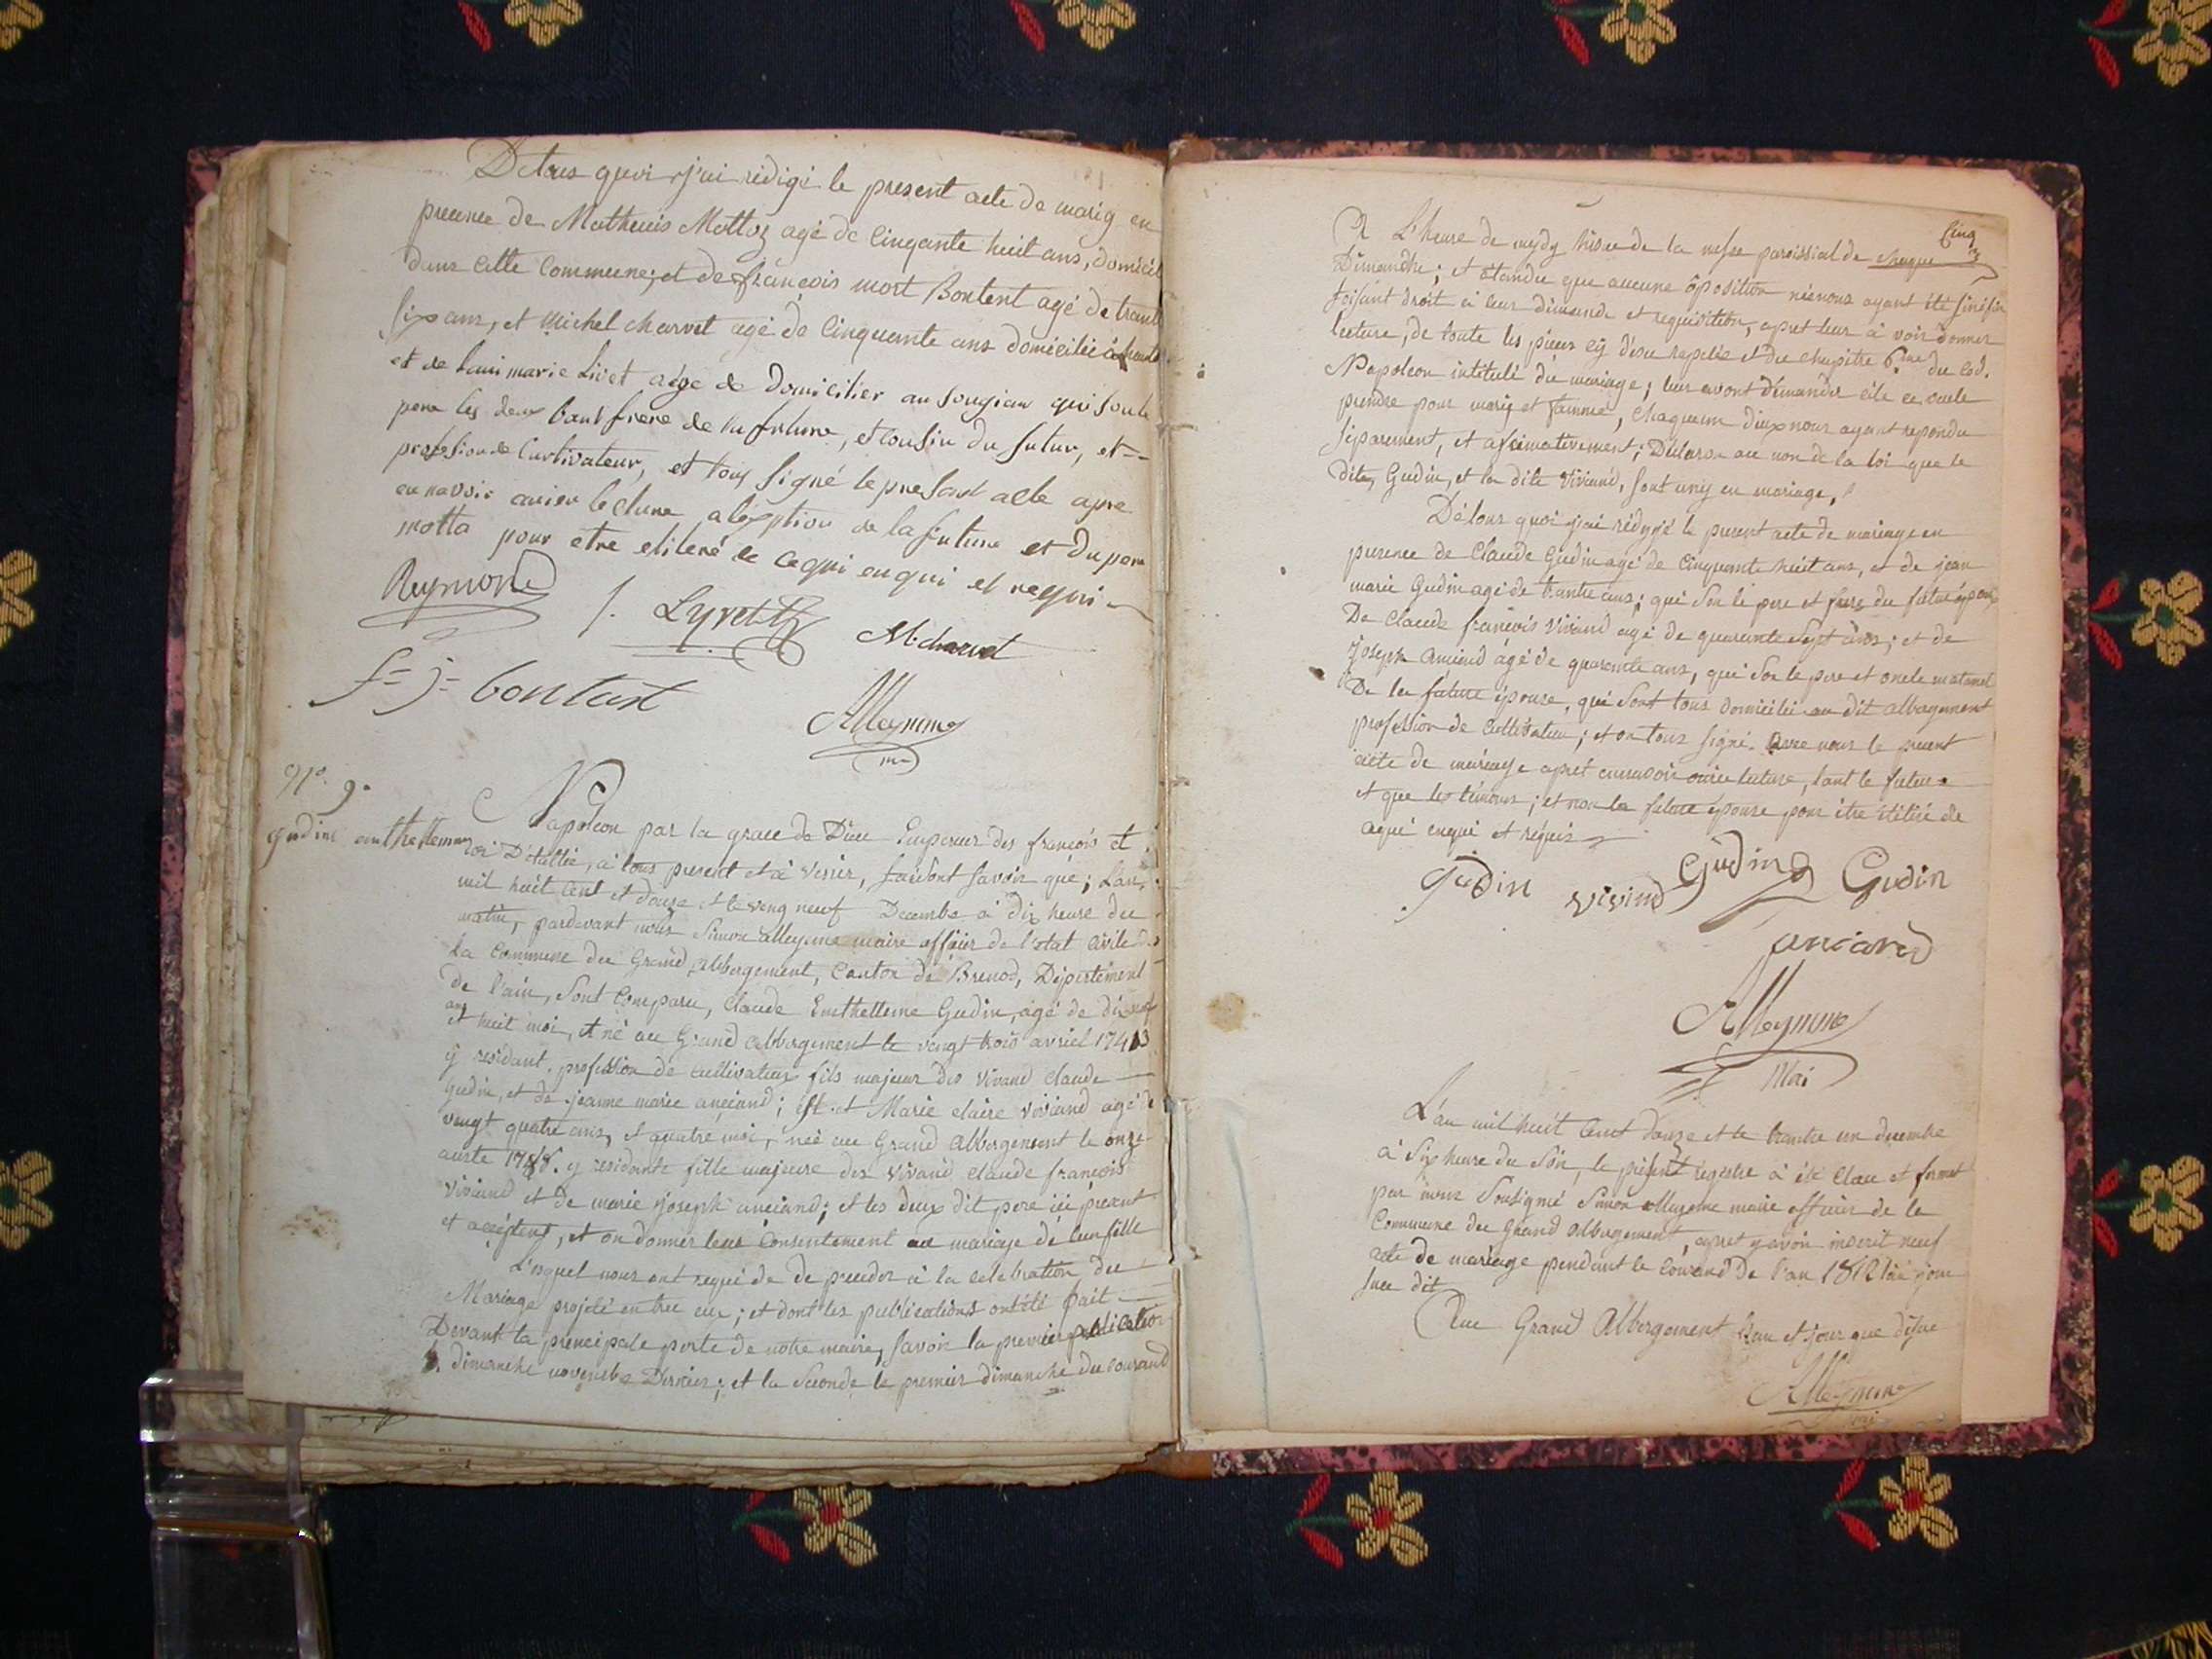 De tous quoi j'ai rédigé le present acte de marig en
presence de Matheuis Mottoz agé de Cinqante huit ans, domicil
dans cette Commune; et de françois mort Bontent agé de trante
Six ans, et Michel charvet agé de Cinquante ans domicilié
et de marie Livet aége de domicilier au Songiau qui
pere les deux baut frere de la future, et cousin du futur, et
profesion de Curtivateur, et tous signé le presant acte apre
en navoir avier lecture a lexption de la future et du pere
motta pour etre elitere de cequi enqui et requi
Reymond
J. Lyvet
M. charvet
f = j = bontant
Alleymme
mr
N.° 9.
gudin anthellemme
Napoleon par la grace de Dieu Empereur des françois et
roi D'itallie, à tous present et à venir, faisont savoir que; L'an
mil huit cent et douze et le veng neuf Decembe à dix heure du
matin, pardevant nous Simon alleymme maire officier de l'etat civile de
la Commune du Grand abbergement, Canton de Brenod, Département
de l'ain, Sont Comparu, Claude Enthelleme Gudin, agé de dix neuf
ans et huit moi, et né au Grand abbergement le vengt trois avriel
y residant, profession de Cultivateur fils majeur des vivand Claude
gudin, et de jeanne marie anciand; et Marie claire viviand agé de
vengt quatre ans, et quatre moi, née au Grand Abbergement le onze
auste 1788. y residante fille majeure des vivand claude françois
Viviand et de marie joseph anciand; et les deux dit pere ici present
et acceptent, et on donner leus Consentement au mariage de leun fille
L'esquel nous ont requi de de proceder à la celebration du
Mariage projeté entre eux; et dont les publications ont été fait
Devant la principale porte de notre mairie, Savoir la premier publication
dimanche novembe Dernier; et la Seconde le premier dimanche du courand
Cinq
A L'heure de mydy hisue de la messe paroissial de chaque
Dimanche; et atandu que aucune oposition né nous ayant été
faisant droit à leur démande et requisition, apret leur à voir donner
lecture, de toute les pieces cy d'esu rapelée et du chapitre 6.me du cod.
Napoleon intitulé du mariage; leur avont démandé
prendre pour marig et famme, chaqueun d'eux nous ayant repondu
séparement, et afirmativement; Déclaron au non de la loi que le
dite, Gudin, et la dite viviand, sont uny en mariage,
Dé tous quoi j'ai rédigé le present acte de mariage en
presence de Claude Gudin agé de Cinquante huit ans, et de jean
marie Gudin agé de trante ans; qui son le pere et frere du futur épouse
De Claude françois Viviand agé de quarante Sept ans; et de
Joseph anciand agé de quarante ans, qui son le pere et oncle maternel
De la future épouse, qui sont tous domicilié au dit abbagement
profession de Cultivateur; et on tous signé. avec nous le present
acte de mariage apret enavoir ouïe lecture, tant le future
et que les témoins; et non la future épouse pour être ilétiré de
aqué enqui et réquis
Gudin vivind Gudin Gudin
anciand
Alleymme
Mai
L'an mil huit Cent Douze et le trante un decembe
à Six heure du Soir, le présent régistre à été Clau et formet
par nous Sousigné Simon alleymme maire officier de la
Commune du Grand abbergement, apret y avoir inscrit neuf
acte de mariage pendant le Courand De l'an 1812 jour
sue dit
Aue Grand Abbergement l'an et jour que d'esue
Alleymme
mai